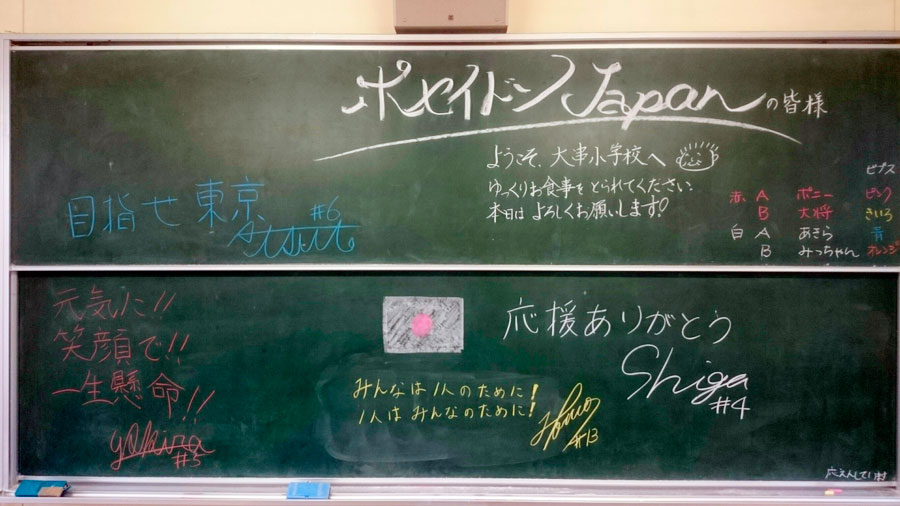 ポセイドンJapanの皆様
ようこそ、大串小学校へ
ゆっくりお食事をとられてください。
本日はよろしくお願いします!
ビブス
赤 A ポニー ピンク
B 大将 きいろ
白 A あきら 青
B みっちゃん オレンジ
目指せ東京
#6
元気に!!
笑顔で!!
一生懸命!!
#5
応援ありがとう
Shiga
#4
みんなは1人のために!
1人はみんなのために!
#13